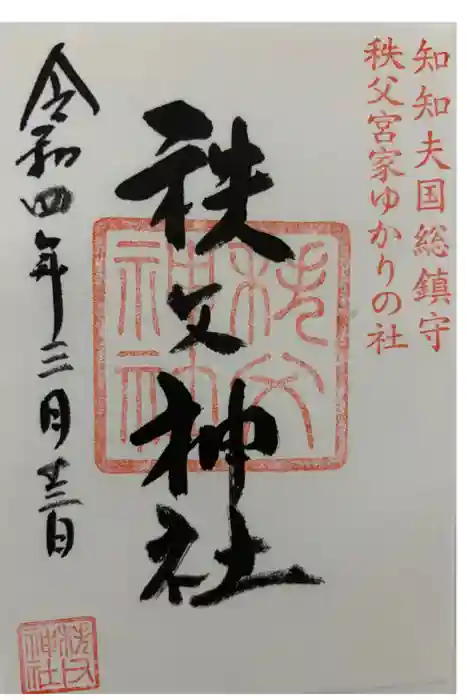 知知夫国総鎮守
秩父宮家ゆかりの社
秩父神社
令和四年三月廿三日
秩父神社
秩父神社